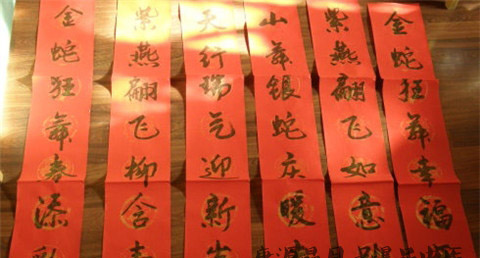 金蛇狂舞春添彩
紫燕翩飞柳含
天行瑞气迎新
山舞银蛇庆暖
紫燕翩飞如意
金蛇狂舞幸福